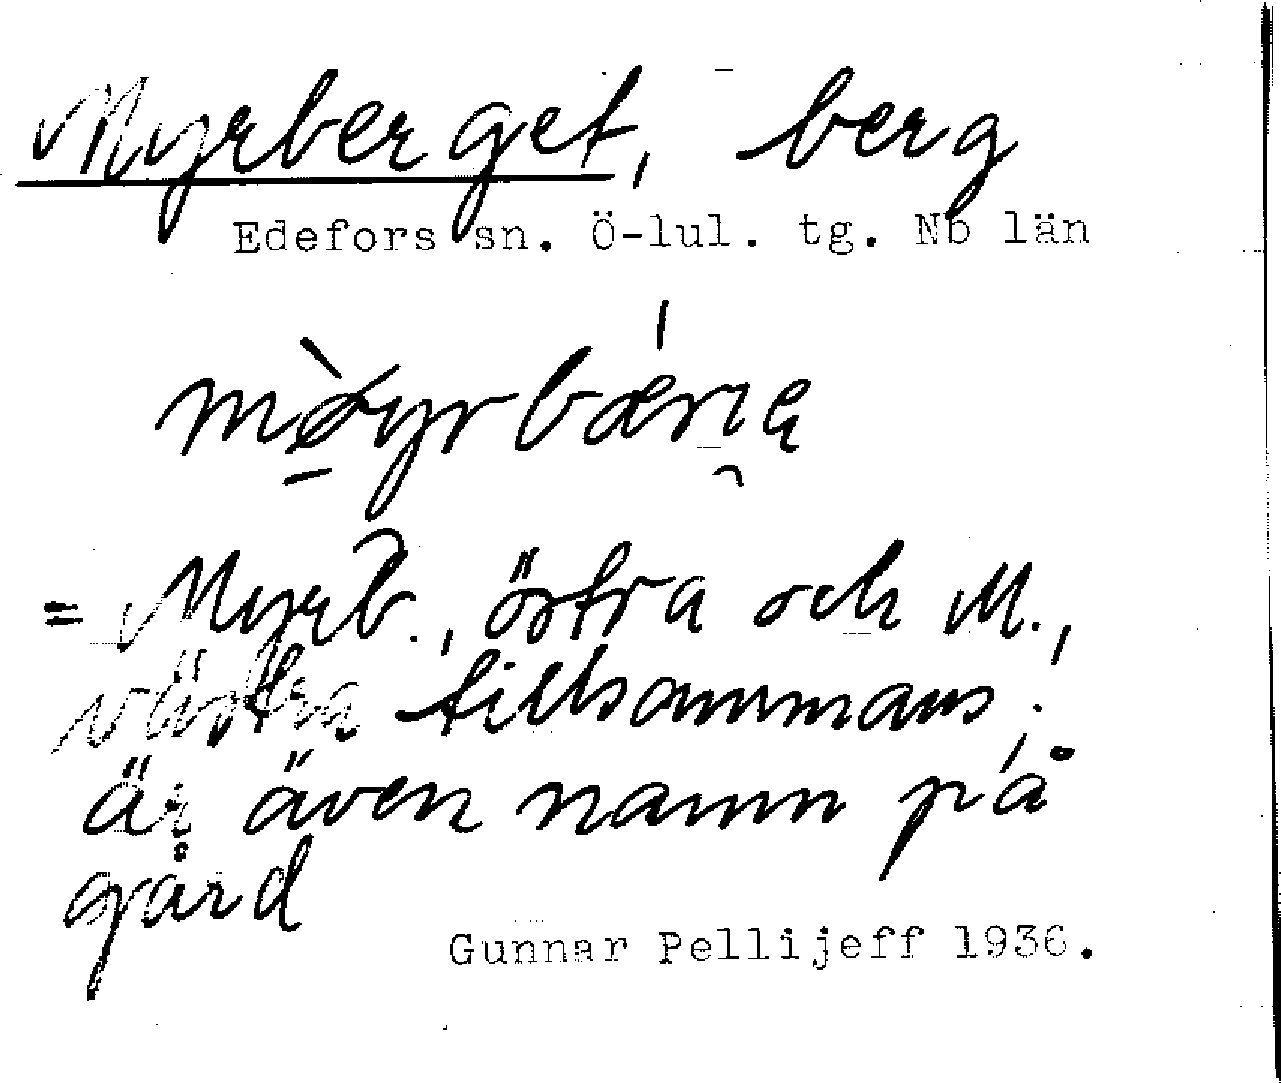 Myrberget, berg
Edefors sn. Ö-lul. tg. Nb län
= Myrb., östra och M.,
västra tillsammans;
är även namn på
gård
Gunnar Pellijeff 1936.